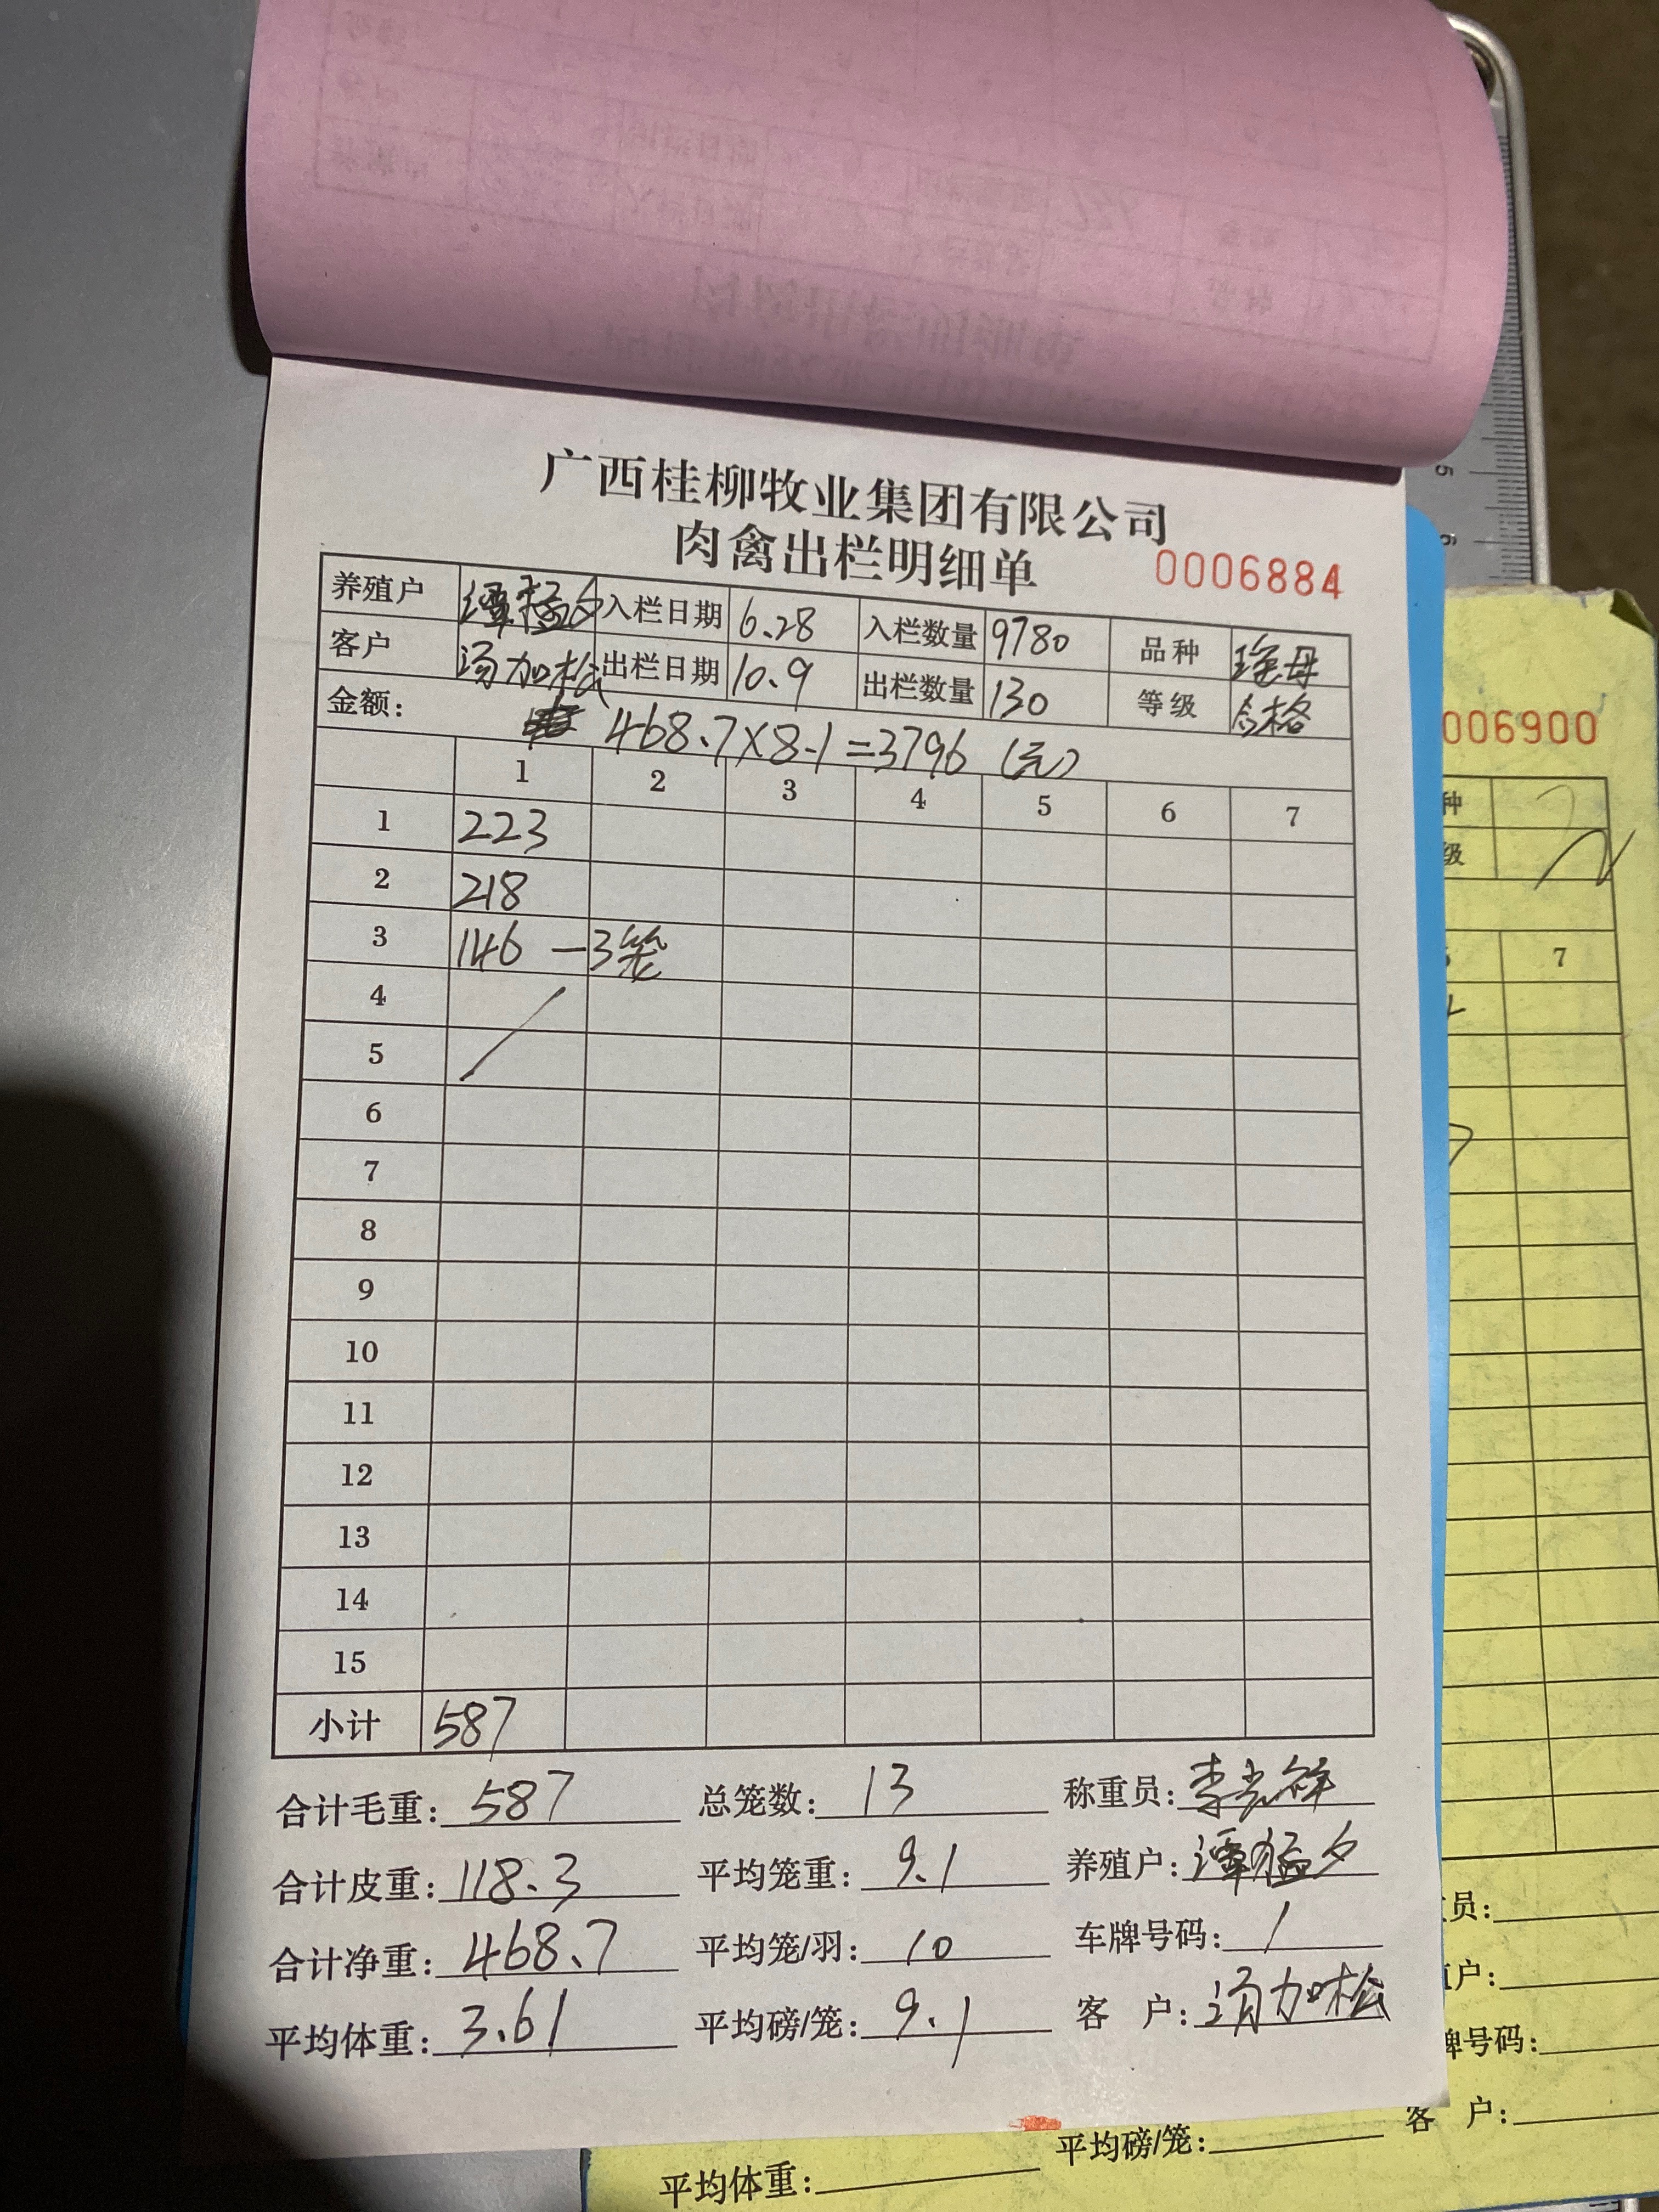 广西桂柳牧业集团有限公司
肉禽出栏明细单 0006884
养殖户 谭猛夕 入栏日期 6.28 入栏数量 9780 品种 瑶母
客户 汤加松 出栏日期 10.9 出栏数量 130 等级 合格
金额: 468.7×8.1=3796 (元)
1 2 3 4 5 6 7
1 223
2 218
3 146 —3笼
4
5
6
7
8
9
10
11
12
13
14
15
小计 587
合计毛重: 587 总笼数: 13 称重员: 李光祥
合计皮重: 118.3 平均笼重: 9.1 养殖户: 谭猛夕
合计净重: 468.7 平均笼/羽: 10 车牌号码: /
平均体重: 3.61 平均磅/笼: 9.1 客 户: 汤加松
006900
种
级
7
员:
户:
牌号码:
客 户:
平均体重: 平均磅/笼: